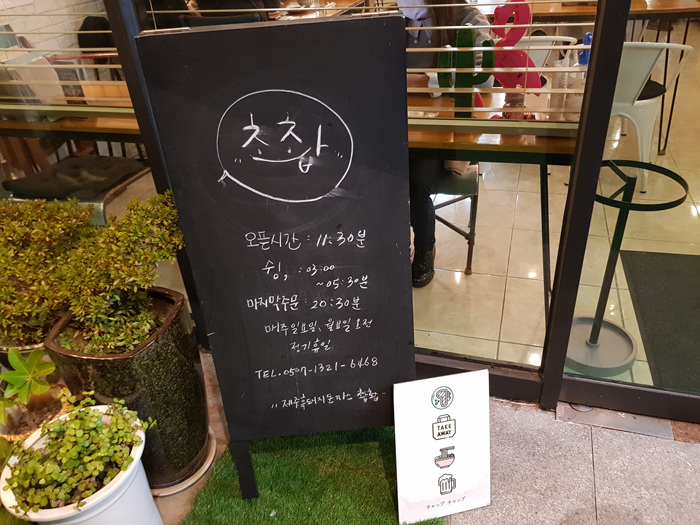 오픈시간 : 11:30분
쉼, : 03:00
~05:30분
마지막주문 : 20:30분
매주 일요일, 월요일 오전
정기휴일.
TEL. 0507-1321-6468
"제주흑돼지돈까스 찹찹"
TAKE
AWAY
チャップ チャップ